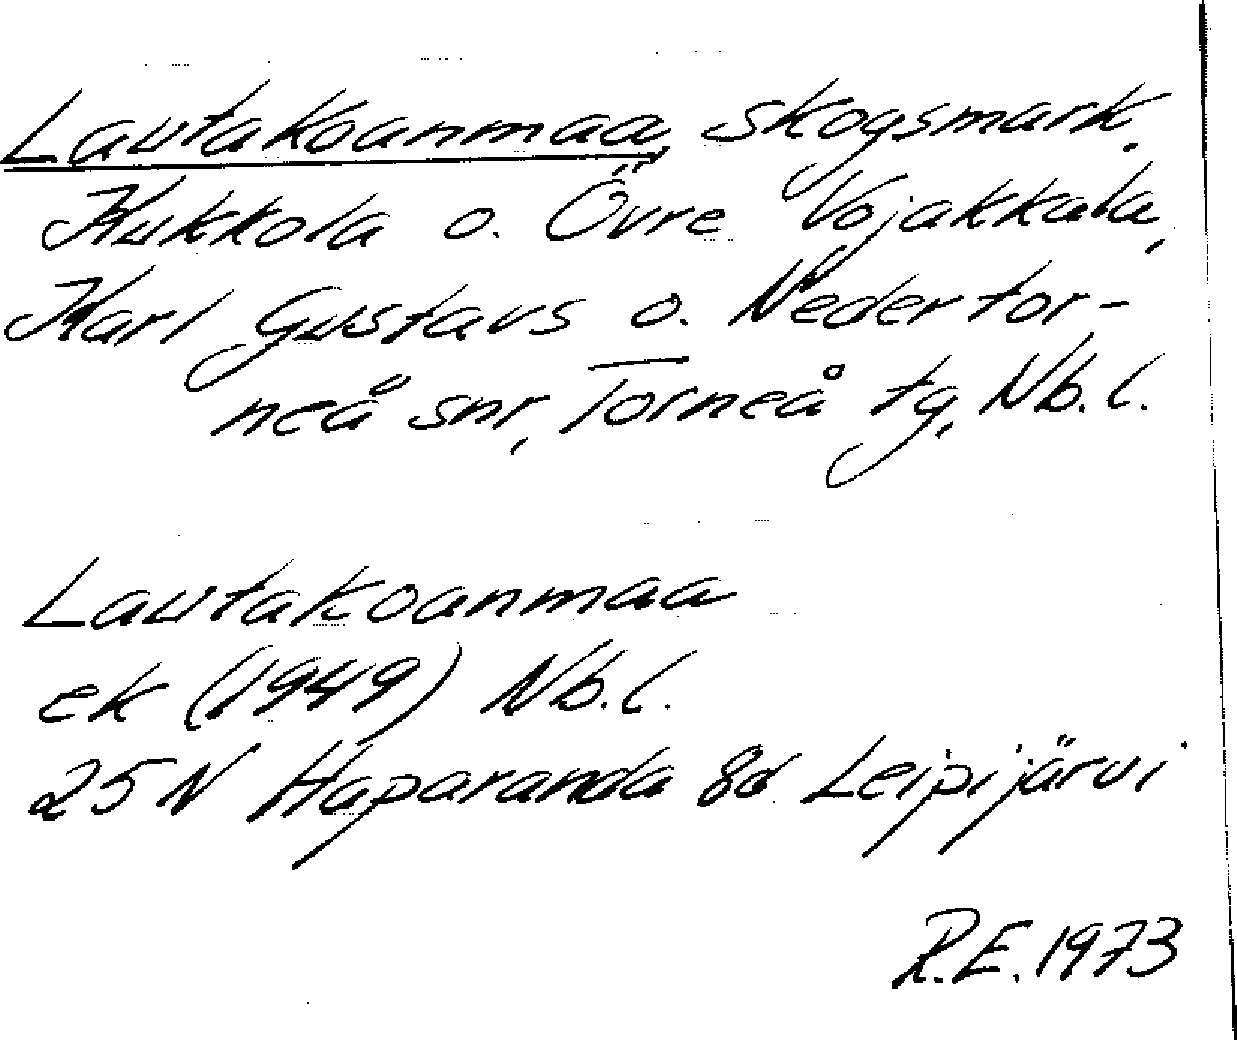 Lautakoanmaa, skogsmark.
Kukkola o. Övre Vojakkala,
Karl Gustavs o. Nedertor-
neå snr, Torneå tg, Nb.l.
Lautakoanmaa
ek (1949) Nb.l.
25N Haparanda 8d Leipijärvi
R.E. 1973